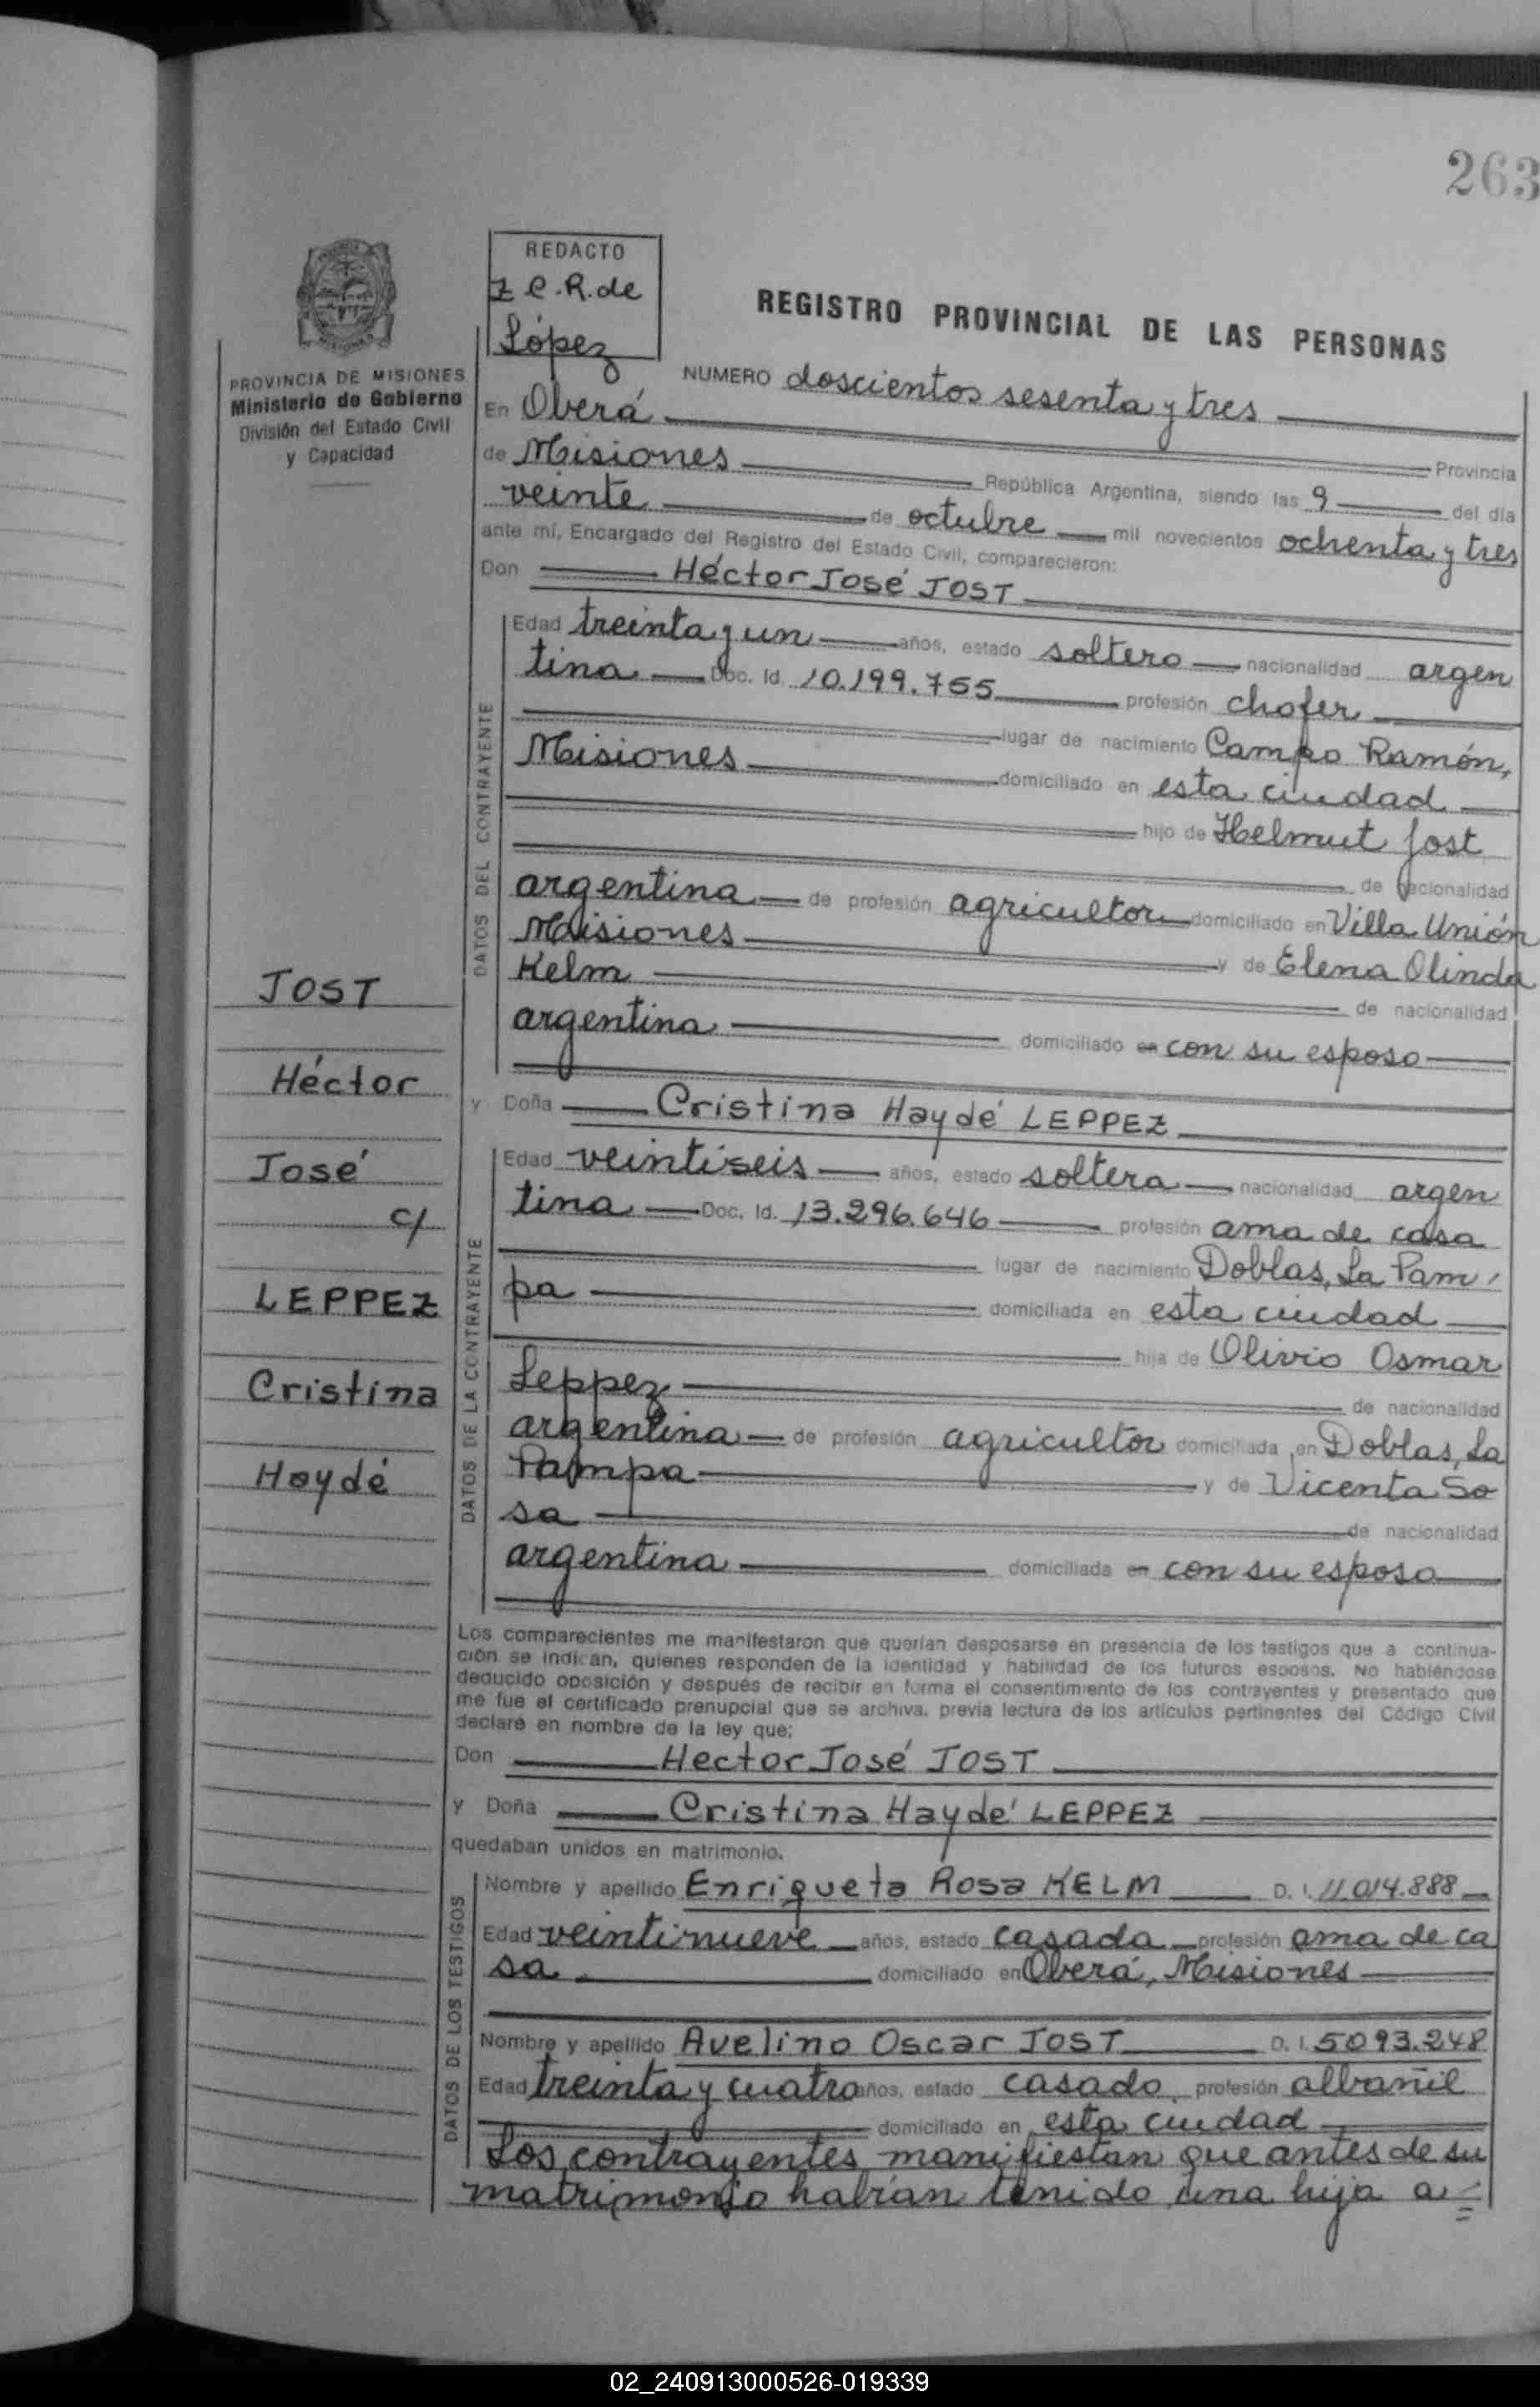 263
REDACTO
Z C. R. de
López
REGISTRO PROVINCIAL DE LAS PERSONAS
PROVINCIA DE MISIONES
Ministerio de Gobierno
División del Estado Civil
y Capacidad
NUMERO doscientos sesenta y tres
En Oberá
Provincia
de Misiones República Argentina, siendo las 9 del día
veinte de octubre mil novecientos ochenta y tres
ante mí, Encargado del Registro del Estado Civil, comparecieron:
Don Héctor José JOST
DATOS DEL CONTRAYENTE
Edad treinta y un años, estado soltero nacionalidad argen
tina Doc. Id. 10.199.755 profesión chofer
lugar de nacimiento Campo Ramón,
Misiones domiciliado en esta ciudad
hijo de Helmut Jost
de nacionalidad
argentina de profesión agricultor domiciliado en Villa Unión
Misiones y de Elena Olinda
Kelm de nacionalidad
argentina domiciliado en con su esposo
y Doña Cristina Haydé LEPPEZ
DATOS DE LA CONTRAYENTE
Edad veintiseis años, estado soltera nacionalidad argen
tina Doc. Id. 13.296.646 profesión ama de casa
lugar de nacimiento Doblas, La Pam
pa domiciliada en esta ciudad
hija de Olivio Osmar
Leppez de nacionalidad
argentina de profesión agricultor domiciliada en Doblas, La
Pampa y de Vicenta So
sa de nacionalidad
argentina domiciliada en con su esposo
JOST
Héctor
José
c/
LEPPEZ
Cristina
Haydé
Los comparecientes me manifestaron que querían desposarse en presencia de los testigos que a continua-
ción se indican, quienes responden de la identidad y habilidad de los futuros esposos. No habiéndose
deducido oposición y después de recibir en forma el consentimiento de los contrayentes y presentado que
me fue el certificado prenupcial que se archiva, previa lectura de los artículos pertinentes del Código Civil
declaré en nombre de la ley que:
Don Hector José JOST
y Doña Cristina Haydé LEPPEZ
quedaban unidos en matrimonio.
DATOS DE LOS TESTIGOS
Nombre y apellido Enriqueta Rosa KELM D. I. 11.014.888
Edad veintinueve años, estado casada profesión ama de ca
sa domiciliado en Oberá, Misiones
Nombre y apellido Avelino Oscar JOST D. I. 5093.248
Edad treinta y cuatro años, estado casado profesión albañil
domiciliado en esta ciudad
Los contrayentes manifiestan que antes de su
matrimonio habían tenido una hija a =
02_240913000526-019339